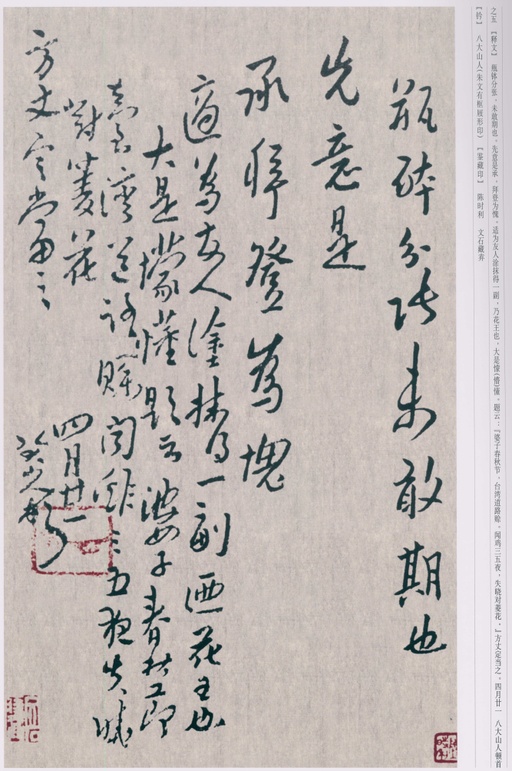 之五 【释文】 瓶钵分张,未敢期也。先意是承,拜登为愧。适为友人涂抹得一副,乃花王也。大是懞(懵)懂。题云:『婆子春秋节,台湾道路赊。闻鸡三五夜,失晓对菱花。』方丈定当之。四月廿一 八大山人顿首
【钤】 八大山人(朱文有框屐形印) 【鉴藏印】 陈时利 文石藏弆
瓶鉢分張未敢期也
先意是
承拜登為愧
適為友人塗抹得一副迺花王也
大是懞懂題云婆子春秋節
臺灣道路賒聞雞三五夜失曉
對菱花
方丈定當之
四月廿一
八大山人頓首